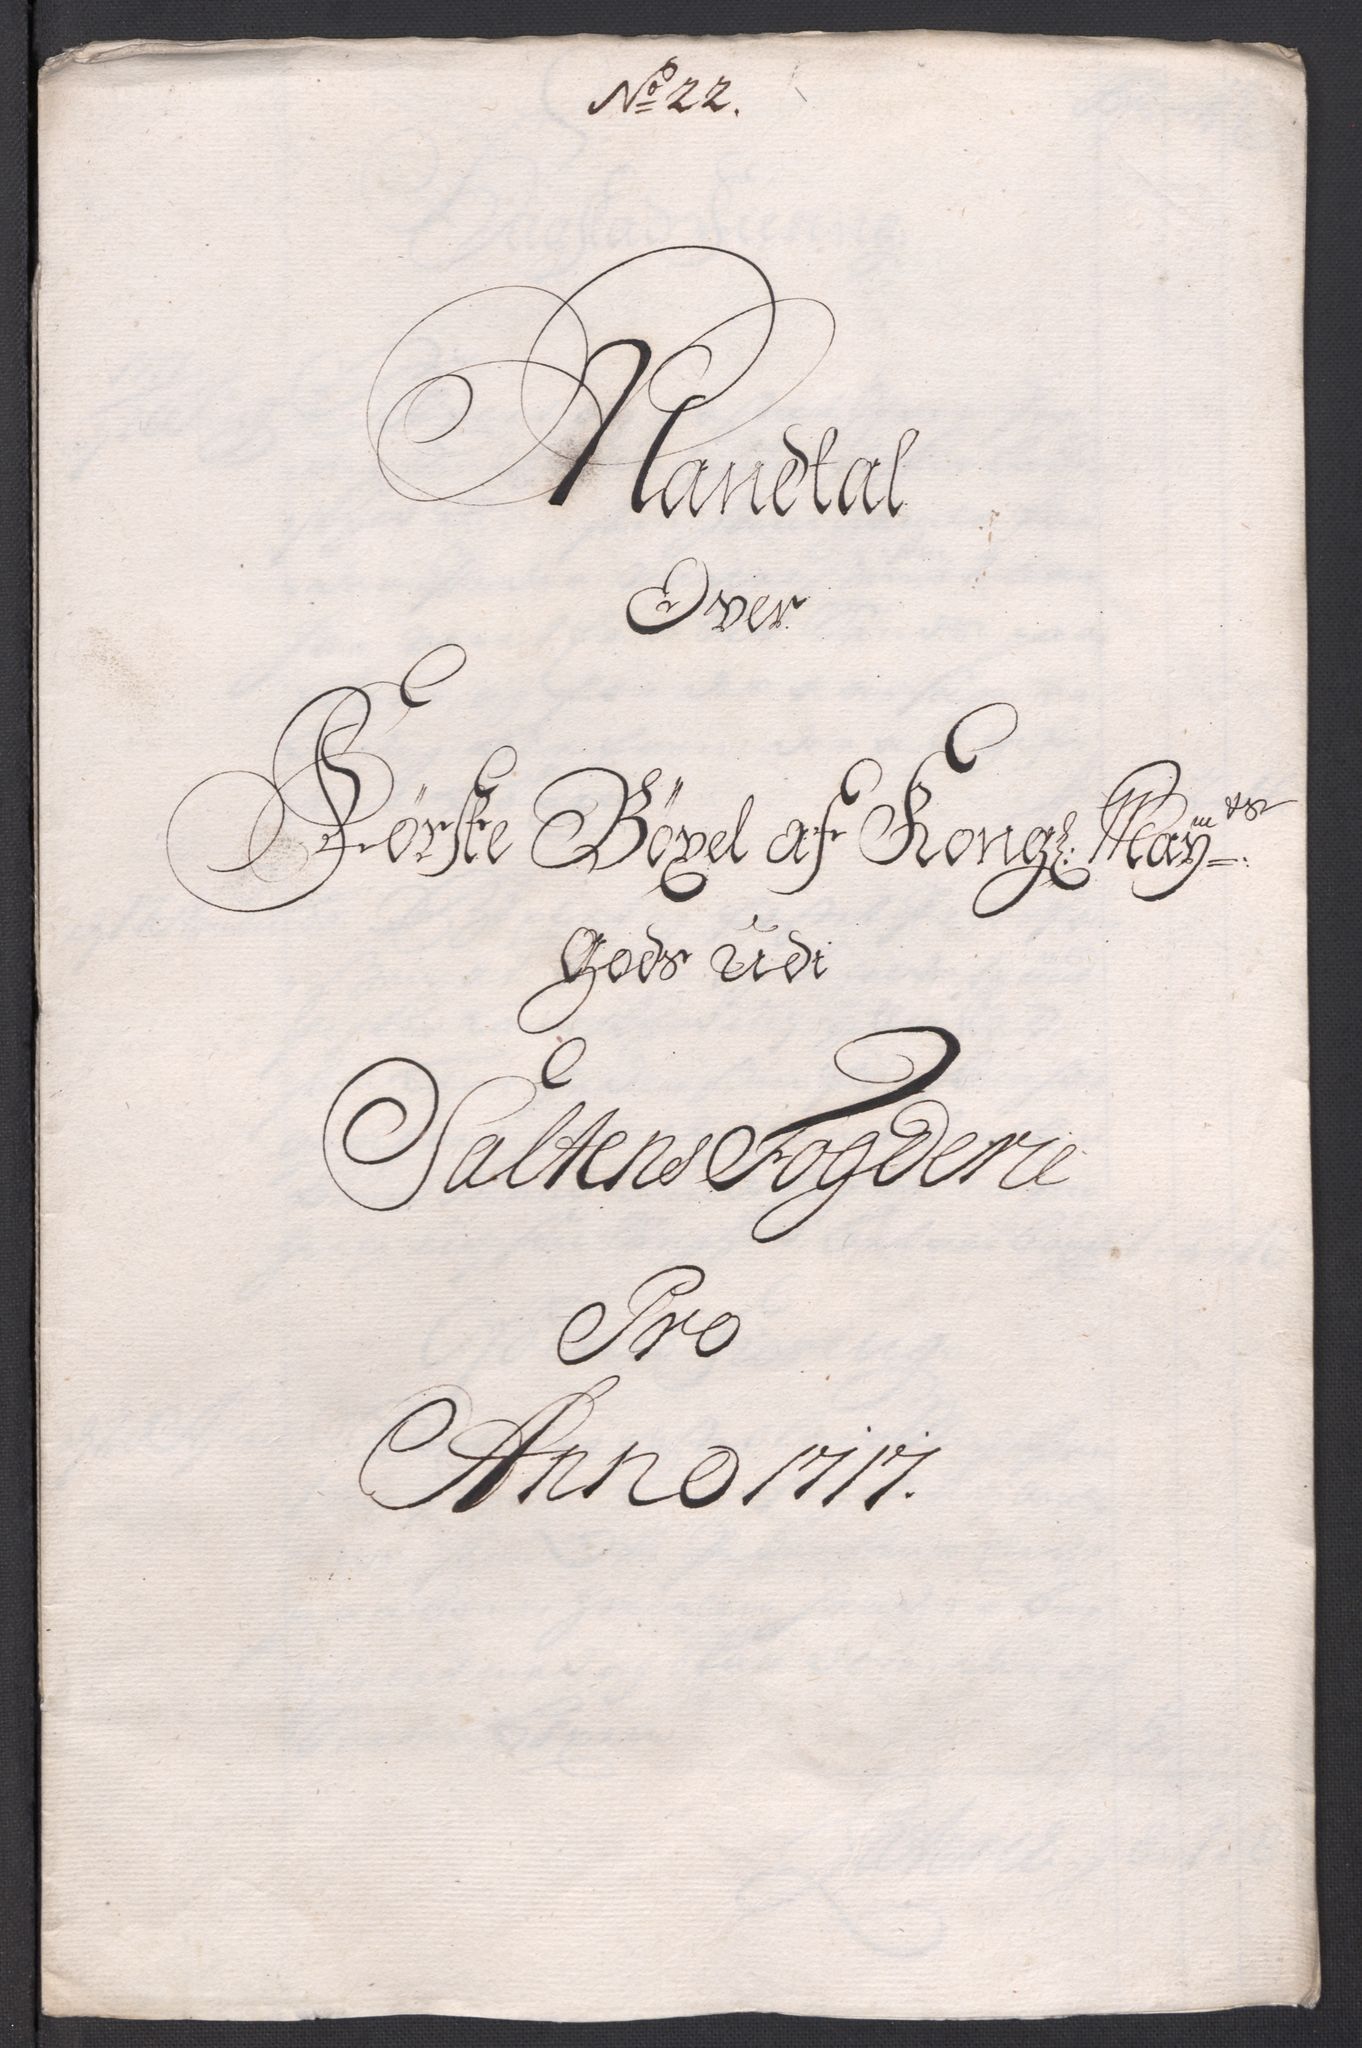 No 22.
Mandtal
Over
Förste Böxel af Kongl: May:ts
gods udi
Saltens Fogderie
Pro
Anno 1717.